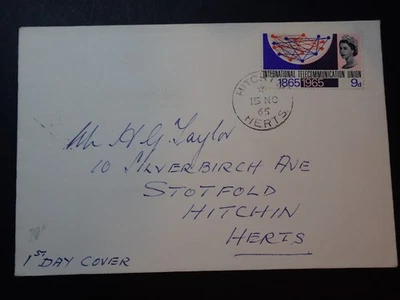 INTERNATIONAL TELECOMMUNICATION UNION
1865 1965 9d
HITCHIN
15 NO
65
HERTS
Mr H G Taylor
10 SILVERBIRCH AVE
STOTFOLD
HITCHIN
HERTS
1ST DAY COVER